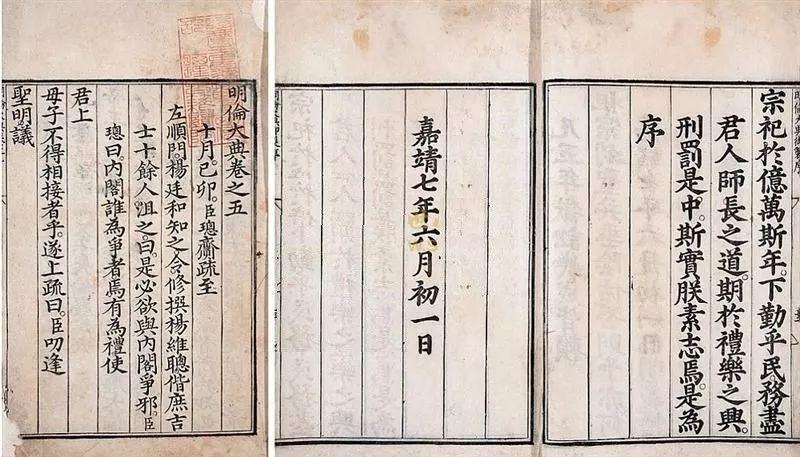 宗祀於億萬斯年。下勤乎民務盡
君人師長之道。期於禮樂之興。
刑罰是中。斯實朕素志焉。是為
序
嘉靖七年六月初一日
明倫大典卷之五
十月己卯。臣璁齎疏至
左順門。楊廷和知之。令修撰楊維聰偕庶吉
士十餘人沮之。曰。是必欲與內閣爭邪。臣
璁曰。內閣誰為爭者。焉有為禮使
君上
母子不得相接者乎。遂上疏曰。臣叨逢
聖明。議